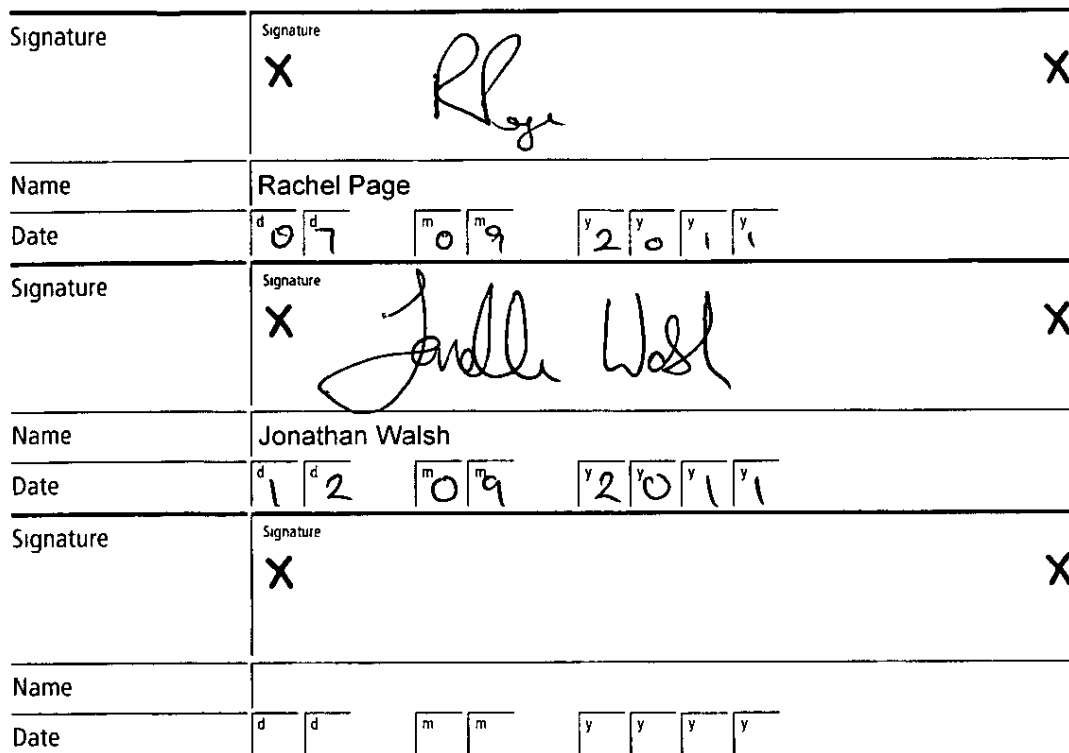 Signature
Signature
X X
R Page
Name Rachel Page
Date d 0 d 7 m 0 m 9 y 2 y 0 y 1 y 1
Signature
Signature
X X
Walsh
Name Jonathan Walsh
Date d 1 d 2 m 0 m 9 y 2 y 0 y 1 y 1
Signature
Signature
X X
Name
Date d d m m y y y y